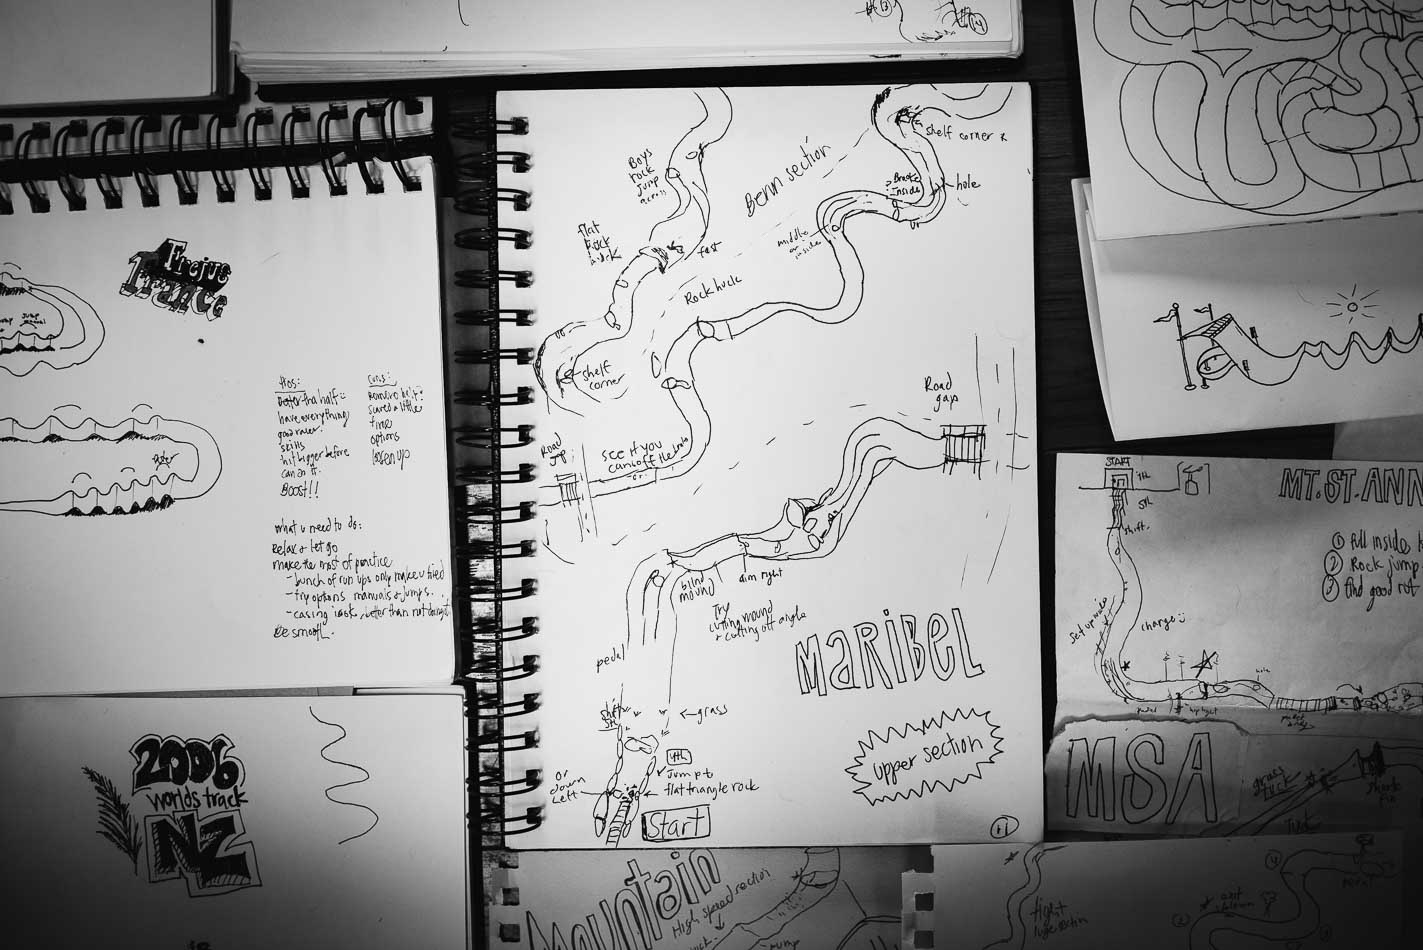 13
14
shelf corner
Boys
rock
jump
across
Berm section
Inside
hole
or
middle
or
inside
flat
Rock
fast
Rock huck
shelf
corner
Road
gap
Road
gap
see if you
can off the brake
or
blind
mound
aim right
Try
cutting mound
+ cutting off angle
pedal
MARIBEL
upper section
shift
5th
grass
4th
jump to
flat triangle rock
or
down
left
Start
11
Frejus
France
jump
manual
Pros:
Better that half
have everything
good racer
skills
hit bigger before
can do it.
Boost!!
cons:
scared a little
time
options
loosen up
what u need to do:
Relax & let go
make the most of practice
- bunch of run ups only make u tired
- try options manuals & jumps.
- casing is ok, better than not doing it
Be smooth.
2006
worlds track
NZ
START
MT. ST. ANN
5th
shift
① full inside
② Rock jump
③ find good rut
set up wide
charge
hole
pedal
MSA
grass
tuck
Tuck
Mountain
High speed section
pump
tight
4
2
3
pedal